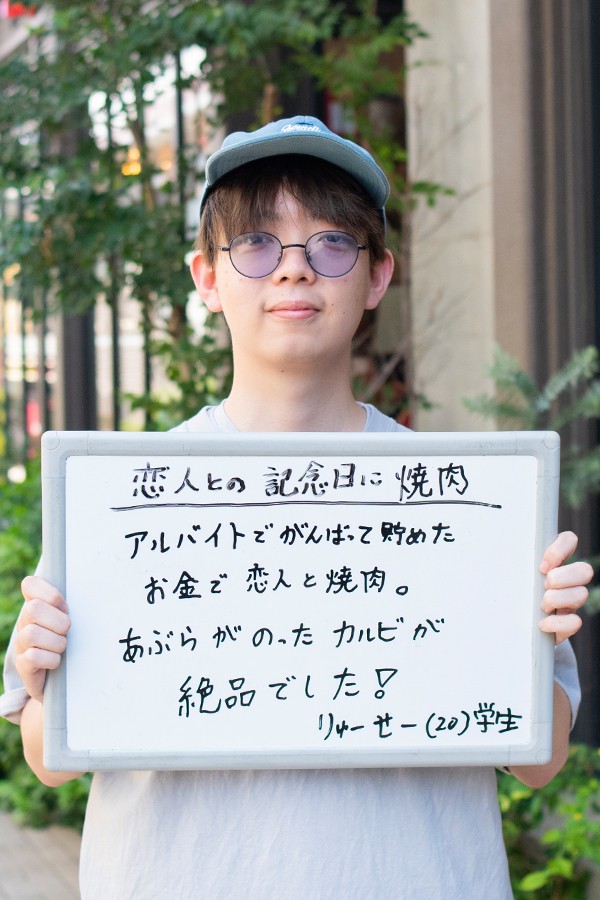 恋人との記念日に焼肉
アルバイトでがんばって貯めた
お金で恋人と焼肉。
あぶらがのったカルビが
絶品でした!
りゅーせー(20)学生